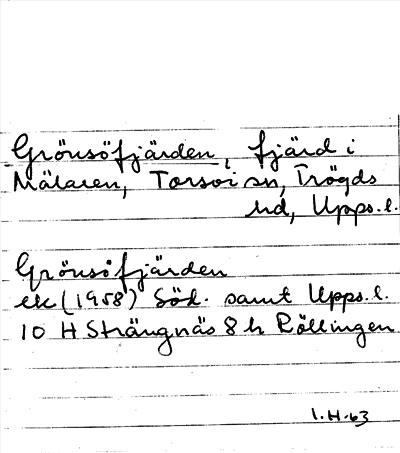 Grönsöfjärden, fjärd i
Mälaren, Torsvi sn, Trögds
hd, Upps. l.
Grönsöfjärden
ek (1958) Söd. samt Upps. l.
10 H Strängnäs 8 h Röllingen
1.H.63